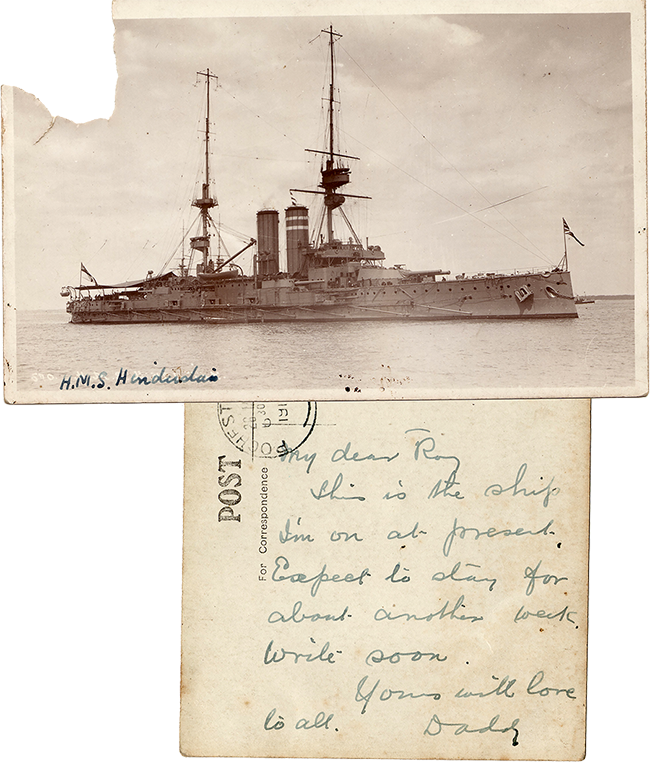 H.M.S. Hindustan
OCHEST
191
POST
For Correspondence
My dear Roy
This is the ship
I'm on at present.
Expect to stay for
about another week.
Write soon.
Yours with love
to all. Daddy